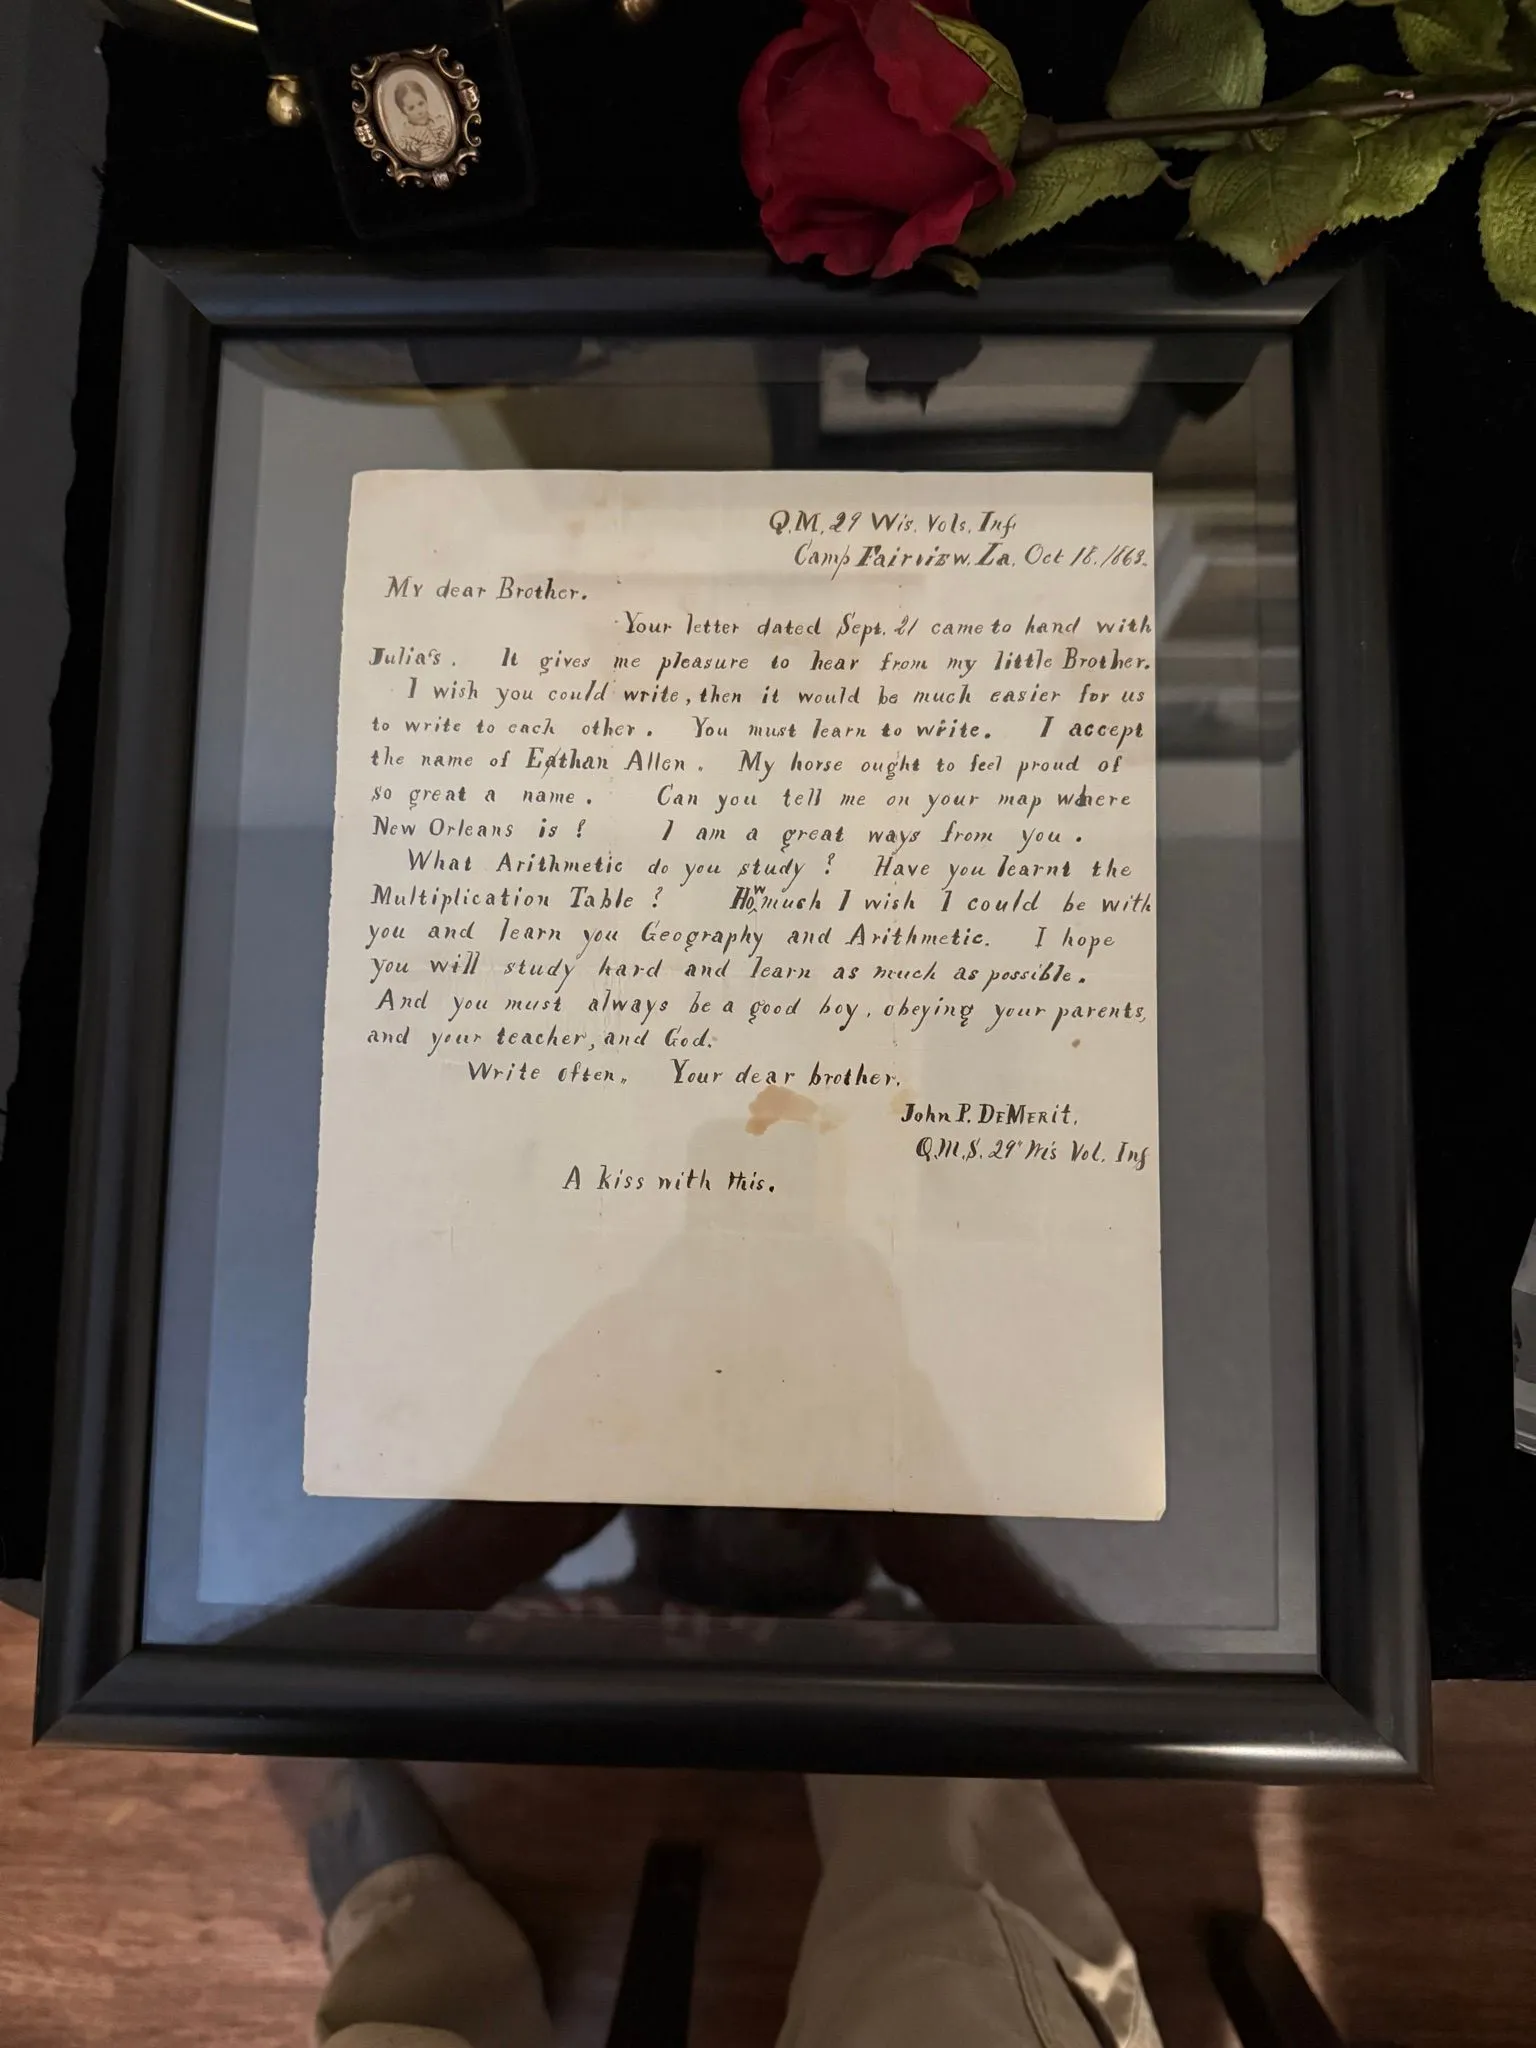 Q.M. 29 Wis. Vols. Inf
Camp Fairview. La. Oct 18. 1863.
My dear Brother.
Your letter dated Sept. 21 came to hand with
Julia's. It gives me pleasure to hear from my little Brother.
I wish you could write, then it would be much easier for us
to write to each other. You must learn to write. I accept
the name of Eathan Allen. My horse ought to feel proud of
so great a name. Can you tell me on your map where
New Orleans is? I am a great ways from you.
What Arithmetic do you study? Have you learnt the
Multiplication Table? How much I wish I could be with
you and learn you Geography and Arithmetic. I hope
you will study hard and learn as much as possible.
And you must always be a good boy, obeying your parents,
and your teacher, and God.
Write often. Your dear brother.
John P. DeMerit.
Q.M.S. 29" Wis Vol. Inf
A kiss with this.